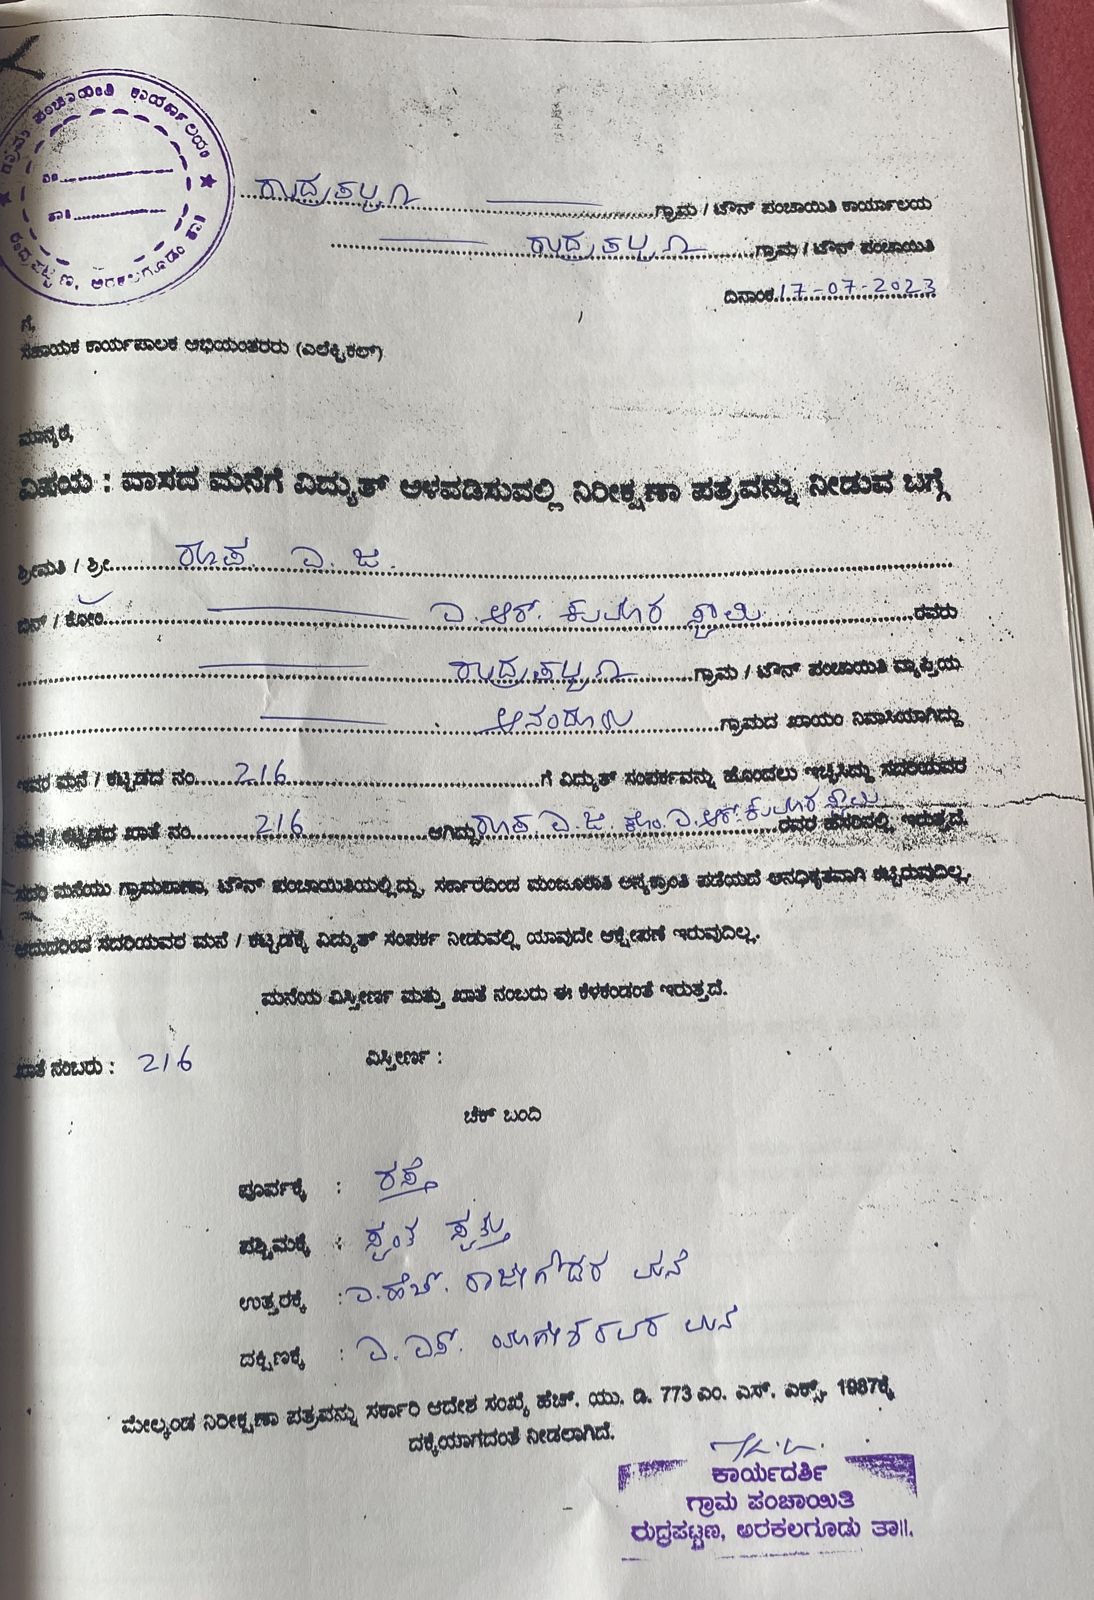 ಗ್ರಾಮ ಪಂಚಾಯಿತಿ ಕಾರ್ಯಾಲಯ
ರುದ್ರಪಟ್ಟಣ, ಅರಕಲಗೂಡು ತಾ||
ರುದ್ರಪಟ್ಟಣ ಗ್ರಾಮ / ಟೌನ್ ಪಂಚಾಯಿತಿ ಕಾರ್ಯಾಲಯ
ರುದ್ರಪಟ್ಟಣ ಗ್ರಾಮ / ಟೌನ್ ಪಂಚಾಯಿತಿ
ದಿನಾಂಕ 17-07-2023
ಗೆ,
ಸಹಾಯಕ ಕಾರ್ಯಪಾಲಕ ಅಭಿಯಂತರರು (ಎಲೆಕ್ಟ್ರಿಕಲ್)
ಮಾನ್ಯರೆ,
ವಿಷಯ : ವಾಸದ ಮನೆಗೆ ವಿದ್ಯುತ್ ಅಳವಡಿಸುವಲ್ಲಿ ನಿರೀಕ್ಷಣಾ ಪತ್ರವನ್ನು ನೀಡುವ ಬಗ್ಗೆ
ಶ್ರೀಮತಿ / ಶ್ರೀ ರೂಪ. ಎ. ಜ.
ಬಿನ್ / ಕೋಂ ಎ. ಆರ್. ಕುಮಾರ ಸ್ವಾಮಿ ರವರು
ರುದ್ರಪಟ್ಟಣ ಗ್ರಾಮ / ಟೌನ್ ಪಂಚಾಯಿತಿ ವ್ಯಾಪ್ತಿಯ
ಗ್ರಾಮದ ಖಾಯಂ ನಿವಾಸಿಯಾಗಿದ್ದು
ಇವರ ಮನೆ / ಕಟ್ಟಡದ ನಂ. 216 ಗೆ ವಿದ್ಯುತ್ ಸಂಪರ್ಕವನ್ನು ಹೊಂದಲು ಇಚ್ಛಿಸಿದ್ದು ಸದರಿಯವರ
ಮನೆ / ಕಟ್ಟಡದ ಖಾತೆ ನಂ. 216 ಆಗಿದ್ದು ರೂಪ. ಎ. ಜ. ಕೋಂ. ಎ. ಆರ್. ಕುಮಾರ ಸ್ವಾಮಿ ರವರ ಹೆಸರಿನಲ್ಲಿ ಇರುತ್ತದೆ.
ಸದರಿ ಮನೆಯು ಗ್ರಾಮಠಾಣಾ, ಟೌನ್ ಪಂಚಾಯಿತಿಯಲ್ಲಿದ್ದು, ಸರ್ಕಾರದಿಂದ ಮಂಜೂರಾತಿ ಅನ್ಯಕ್ರಾಂತಿ ಪಡೆಯದೆ ಅನಧಿಕೃತವಾಗಿ ಕಟ್ಟಿರುವುದಿಲ್ಲ.
ಆದುದರಿಂದ ಸದರಿಯವರ ಮನೆ / ಕಟ್ಟಡಕ್ಕೆ ವಿದ್ಯುತ್ ಸಂಪರ್ಕ ನೀಡುವಲ್ಲಿ ಯಾವುದೇ ಆಕ್ಷೇಪಣೆ ಇರುವುದಿಲ್ಲ.
ಮನೆಯ ವಿಸ್ತೀರ್ಣ ಮತ್ತು ಖಾತೆ ನಂಬರು ಈ ಕೆಳಕಂಡಂತೆ ಇರುತ್ತದೆ.
ಖಾತೆ ನಂಬರು : 216 ವಿಸ್ತೀರ್ಣ :
ಚೆಕ್ ಬಂದಿ
ಪೂರ್ವಕ್ಕೆ : ರಸ್ತೆ
ಪಶ್ಚಿಮಕ್ಕೆ : ಸ್ವಂತ ಸ್ವತ್ತು
ಉತ್ತರಕ್ಕೆ : ಎ. ಹೆಚ್. ರಾಜೇಗೌಡರ ಮನೆ
ದಕ್ಷಿಣಕ್ಕೆ : ಎ. ಎನ್. ಯೋಗೇಶರವರ ಮನೆ
ಮೇಲ್ಕಂಡ ನಿರೀಕ್ಷಣಾ ಪತ್ರವನ್ನು ಸರ್ಕಾರಿ ಆದೇಶ ಸಂಖ್ಯೆ ಹೆಚ್. ಯು. ಡಿ. 773 ಎಂ. ಎಸ್. ಎಕ್ಸ್. 1987ಕ್ಕೆ
ದಕ್ಕೆಯಾಗದಂತೆ ನೀಡಲಾಗಿದೆ.
ಕಾರ್ಯದರ್ಶಿ
ಗ್ರಾಮ ಪಂಚಾಯಿತಿ
ರುದ್ರಪಟ್ಟಣ, ಅರಕಲಗೂಡು ತಾ||.